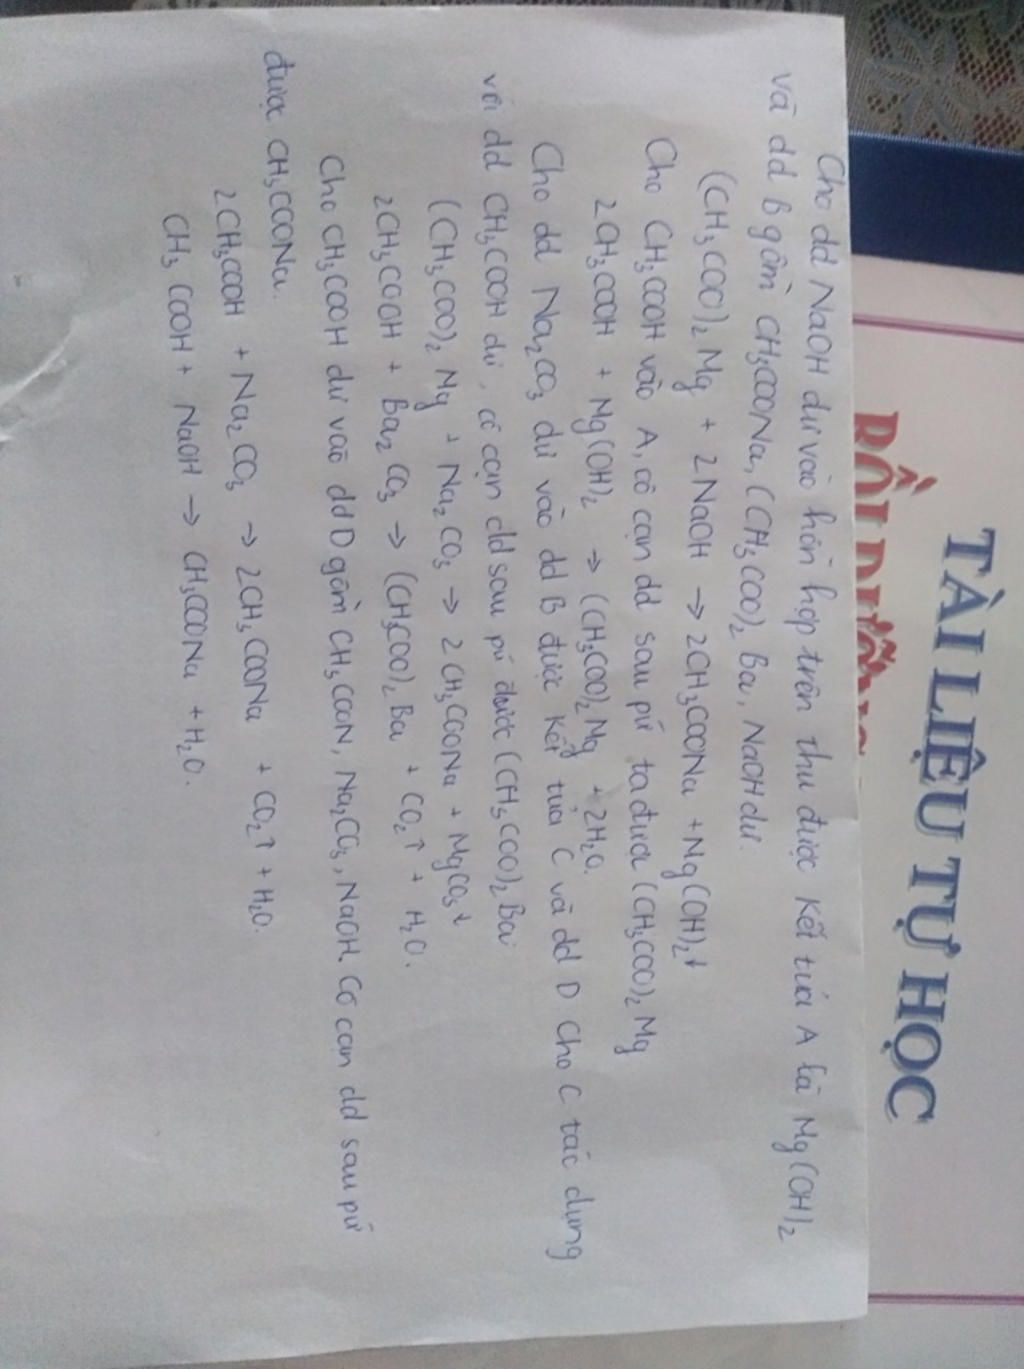 TÀI LIỆU TỰ HỌC
Cho dd NaOH dư vào hỗn hợp trên thu được kết tủa A là Mg(OH)2
và dd B gồm CH3COONa, (CH3COO)2 Ba, NaOH dư.
(CH3COO)2 Mg + 2NaOH → 2CH3COONa + Mg(OH)2↓
Cho CH3COOH vào A, cô cạn dd sau pứ ta được (CH3COO)2 Mg
2CH3COOH + Mg(OH)2 → (CH3COO)2 Mg + 2H2O.
Cho dd Na2CO3 dư vào dd B được kết tủa C và dd D Cho C tác dụng
với dd CH3COOH dư, cô cạn dd sau pứ được (CH3COO)2 Ba
(CH3COO)2 Mg + Na2CO3 → 2CH3COONa + MgCO3↓
2CH3COOH + Ba2CO3 → (CH3COO)2 Ba + CO2↑ + H2O.
Cho CH3COOH dư vào dd D gồm CH3COON, Na2CO3, NaOH. Cô cạn dd sau pứ
được CH3COONa.
2CH3COOH + Na2CO3 → 2CH3COONa + CO2↑ + H2O.
CH3COOH + NaOH → CH3COONa + H2O.